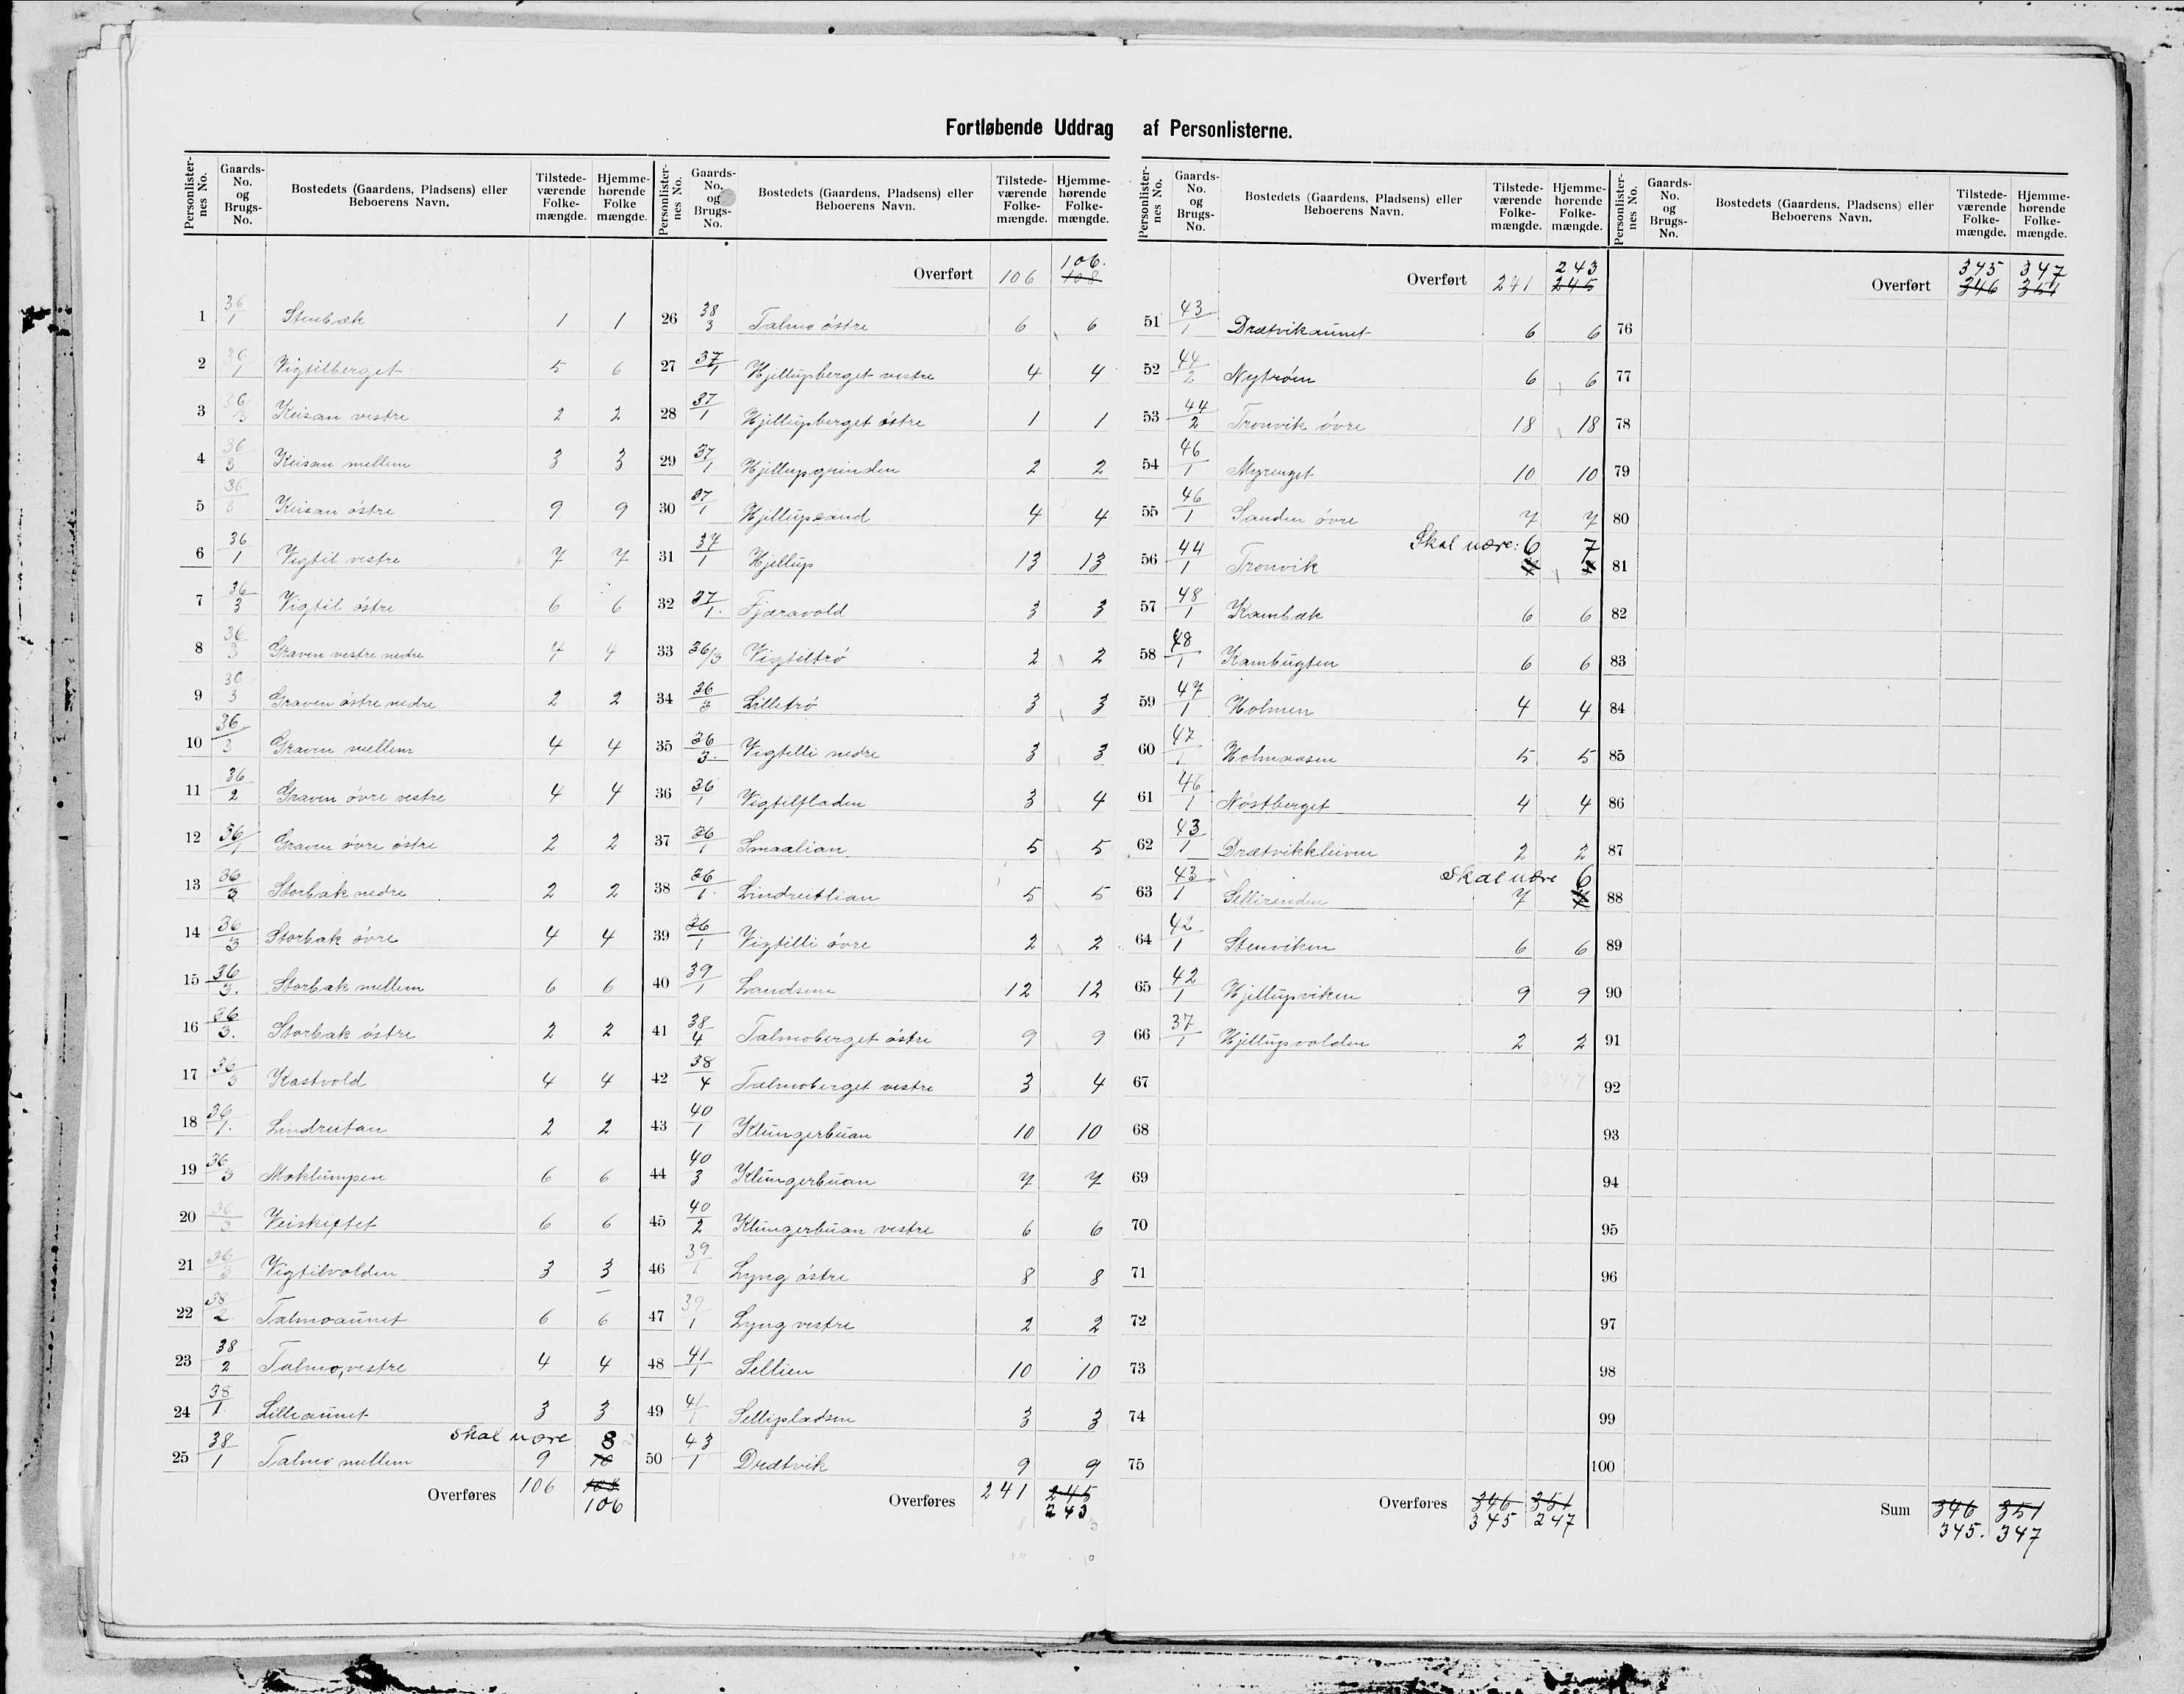 Fortløbende Uddrag af Personlisterne.
Personlister-nes No. | Gaards-No. og Brugs-No. | Bostedets (Gaardens, Pladsens) eller Beboerens Navn. | Tilstede-værende Folke-mængde. | Hjemme-hørende Folke mængde.
1 36/1 Stenbæk 1 1
2 36/1 Vigtilberget 5 6
3 36/3 Keisan vestre 2 2
4 36/3 Keisan mellem 3 3
5 36/3 Keisan östre 9 9
6 36/1 Vigtil vestre 7 7
7 36/3 Vigtil östre 6 6
8 36/3 Graven vestre nedre 4 4
9 36/3 Graven östre nedre 2 2
10 36/3 Graven mellem 4 4
11 36/2 Graven övre vestre 4 4
12 36/1 Graven övre östre 2 2
13 36/3 Storbak nedre 2 2
14 36/3 Storbak övre 4 4
15 36/3. Storbak mellem 6 6
16 36/3. Storbak östre 2 2
17 36/3 Kastvold 4 4
18 36/1. Lindreitan 2 2
19 36/3 Moklumpen 6 6
20 36/3 Veiskiftet 6 6
21 36/3 Vigtilvolden 3 3
22 38/2 Talmoaunet 6 6
23 38/2 Talmo, vestre 4 4
24 38/1 Lilleaunet 3 3
skal være 8
25 38/1 Talmo mellem 9 10
Overføres 106 108
106
Personlister-nes No. | Gaards-No. og Brugs-No. | Bostedets (Gaardens, Pladsens) eller Beboerens Navn. | Tilstede-værende Folke-mængde. | Hjemme-hørende Folke-mængde.
106.
Overført 106 108
26 38/3 Talmo östre 6 6
27 37/1 Hjellupberget vestre 4 4
28 37/1 Hjellupberget östre 1 1
29 37/1 Hjellupgrinden 2 2
30 37/1 Hjellupsand 4 4
31 37/1 Hjellup 13 13
32 37/1. Fjæravold 3 3
33 36/3 Vigtiltrö 2 2
34 36/3 Lilletrö 3 3
35 36/3. Vigtilli nedre 3 3
36 36/1 Vigtilfladen 3 4
37 36/1 Smaalian 5 5
38 36/1. Lindreitlian 5 5
39 36/1 Vigtilli övre 2 2
40 39/1 Landsem 12 12
41 38/4 Talmoberget östre 9 9
42 38/4 Talmoberget vestre 3 4
43 40/1 Klungerbuan 10 10
44 40/3 Klungerbuan 7 7
45 40/2 Klungerbuan vestre 6 6
46 39/1 Lyng östre 8 8
47 39/1 Lyng vestre 2 2
48 41/1 Sellien 10 10
49 41/1 Sellipladsen 3 3
50 43/1 Drætvik 9 9
Overføres 241 245
243
Personlister-nes No. | Gaards-No. og Brugs-No. | Bostedets (Gaardens, Pladsens) eller Beboerens Navn. | Tilstede-værende Folke-mængde. | Hjemme-hørende Folke-mængde.
243
Overført 241 245
51 43/1 Drætvikaunet 6 6
52 44/2 Nytrøen 6 6
53 44/2 Tronvik övre 18 18
54 46/1 Myrenget 10 10
55 46/1 Sanden övre 7 7
Skal være: 6 7
56 44/1 Tronvik
57 48/1 Kambæk 6 6
58 48/1 Kambugten 6 6
59 47/1 Holmen 4 4
60 47/1 Holmaasen 5 5
61 46/1 Nöstberget 4 4
62 43/1 Drætvikkleiven 2 2
Skal være 6
63 43/1 Sellirenden 7
64 42/1 Stenviken 6 6
65 42/1 Hjellupviken 9 9
66 37/1 Hjellupvolden 2 2
67
68
69
70
71
72
73
74
75
Overføres 346 351
345 247
Personlister-nes No. | Gaards-No. og Brugs-No. | Bostedets (Gaardens, Pladsens) eller Beboerens Navn. | Tilstede-værende Folke-mængde. | Hjemme-hørende Folke-mængde.
345 347
Overført 346 351
76
77
78
79
80
81
82
83
84
85
86
87
88
89
90
91
92
93
94
95
96
97
98
99
100
Sum 346 351
345. 347